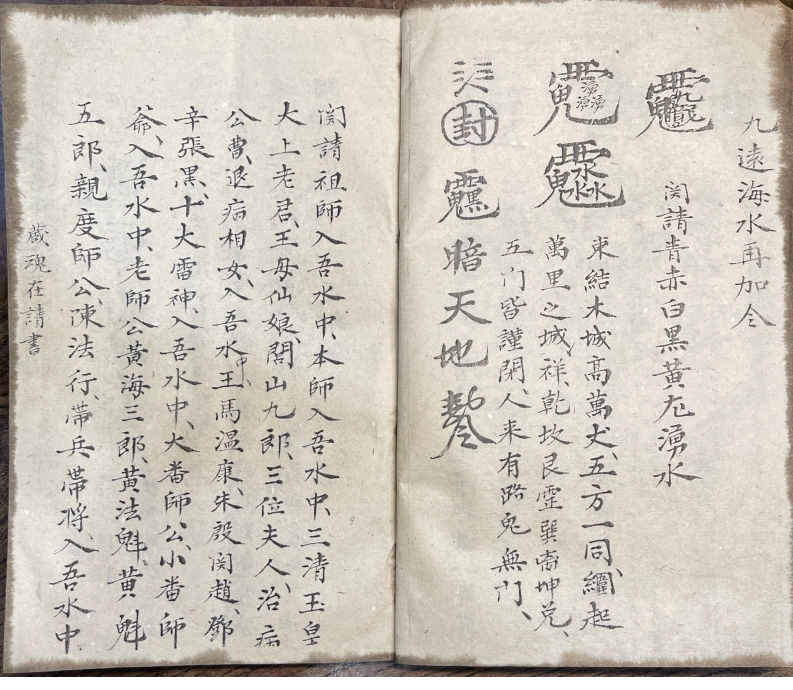 九遠海水再加仝
関請青赤白黑黃尢湧水
東結木城高萬丈、五方一同、繼起
萬里之城、祥、乾坎艮震巽离坤兌、
五门皆謹閉、人来有路鬼無门、
封
暗天地
関請祖師入吾水中、本師入吾水中、三清玉皇
大上老君、王母仙娘、閭山九郎、三位夫人、治病
公曹、退病相女、入吾水中、王馬温康、朱殷関趙、鄧
辛張黑、十大雷神、入吾水中、大番師公、小番師
爺、入吾水中、老師公黃海三郎、黃法魁、黃魁
五郎、親度師公、陳法行、帶兵帶将、入吾水中
蔵魂在請書